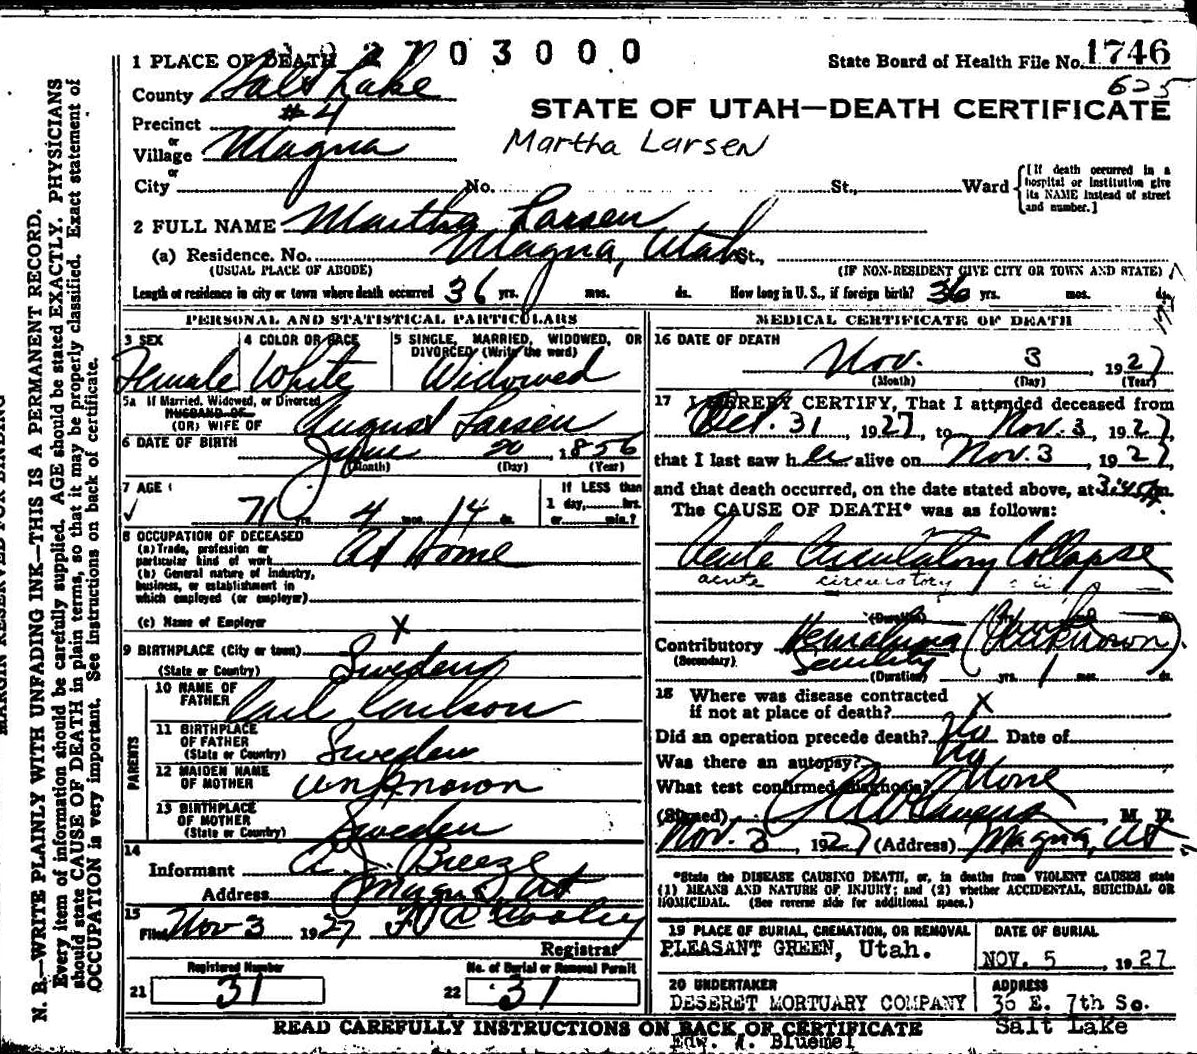 1927 03000
1 PLACE OF DEATH
State Board of Health File No. 1746
625
County Salt Lake
STATE OF UTAH—DEATH CERTIFICATE
Precinct #4
Martha Larsen
or
Village Magna
or
City No. St., Ward
[If death occurred in a hospital or institution give its NAME instead of street and number.]
2 FULL NAME Martha Larsen
(a) Residence. No. Magna, Utah St.,
(USUAL PLACE OF ABODE) (IF NON-RESIDENT GIVE CITY OR TOWN AND STATE)
Length of residence in city or town where death occurred 36 yrs. mos. ds. How long in U. S., if foreign birth? 36 yrs. mos. ds.
PERSONAL AND STATISTICAL PARTICULARS
3 SEX
Female
4 COLOR OR RACE
White
5 SINGLE, MARRIED, WIDOWED, OR DIVORCED (Write the word)
Widowed
5a If Married, Widowed, or Divorced
HUSBAND OF
(OR) WIFE OF August Larsen
6 DATE OF BIRTH June 20, 1856
(Month) (Day) (Year)
7 AGE
71 yrs. 4 mos. 14 ds.
If LESS than
1 day, hrs.
or min.?
8 OCCUPATION OF DECEASED
(a) Trade, profession or
particular kind of work At Home
(b) General nature of Industry,
business, or establishment in
which employed (or employer)
(c) Name of Employer X
9 BIRTHPLACE (City or town)
(State or Country) Sweden
PARENTS
10 NAME OF
FATHER Carl Carlson
11 BIRTHPLACE
OF FATHER
(State or Country) Sweden
12 MAIDEN NAME
OF MOTHER Unknown
13 BIRTHPLACE
OF MOTHER
(State or Country) Sweden
14
Informant A. J. Breeze
Address Magna, Ut
15
Filed Nov 3 1927
Registrar
Registered Number
21 31
No. of Burial or Removal Permit
22 31
MEDICAL CERTIFICATE OF DEATH
16 DATE OF DEATH
Nov. 3 1927
(Month) (Day) (Year)
17 I HEREBY CERTIFY, That I attended deceased from
Oct. 31, 1927, to Nov. 3, 1927,
that I last saw her alive on Nov. 3, 1927,
and that death occurred, on the date stated above, at 3:45 m.
The CAUSE OF DEATH* was as follows:
Acute Circulatory Collapse
acute circulatory
(Duration)
Contributory (Unknown).
(Secondary) Senility
(Duration) yrs. 1 mos. ds.
18 Where was disease contracted
if not at place of death? X
Did an operation precede death? No Date of
Was there an autopsy? No
What test confirmed diagnosis? None
(Signed) M. D.
Nov. 3 1927 (Address) Magna, Ut
*State the DISEASE CAUSING DEATH, or, in deaths from VIOLENT CAUSES state
(1) MEANS AND NATURE OF INJURY; and (2) whether ACCIDENTAL, SUICIDAL OR
HOMICIDAL. (See reverse side for additional space.)
19 PLACE OF BURIAL, CREMATION, OR REMOVAL
PLEASANT GREEN, Utah.
DATE OF BURIAL
NOV. 5, 1927
20 UNDERTAKER
DESERET MORTUARY COMPANY
ADDRESS
36 E. 7th So.
Salt Lake
READ CAREFULLY INSTRUCTIONS ON BACK OF CERTIFICATE
Edw. A. Bluemel
MARGIN RESERVED FOR BINDING
N. B.—WRITE PLAINLY WITH UNFADING INK—THIS IS A PERMANENT RECORD.
Every item of information should be carefully supplied. AGE should be stated EXACTLY. PHYSICIANS
should state CAUSE OF DEATH in plain terms, so that it may be properly classified. Exact statement of
OCCUPATION is very important. See instructions on back of certificate.